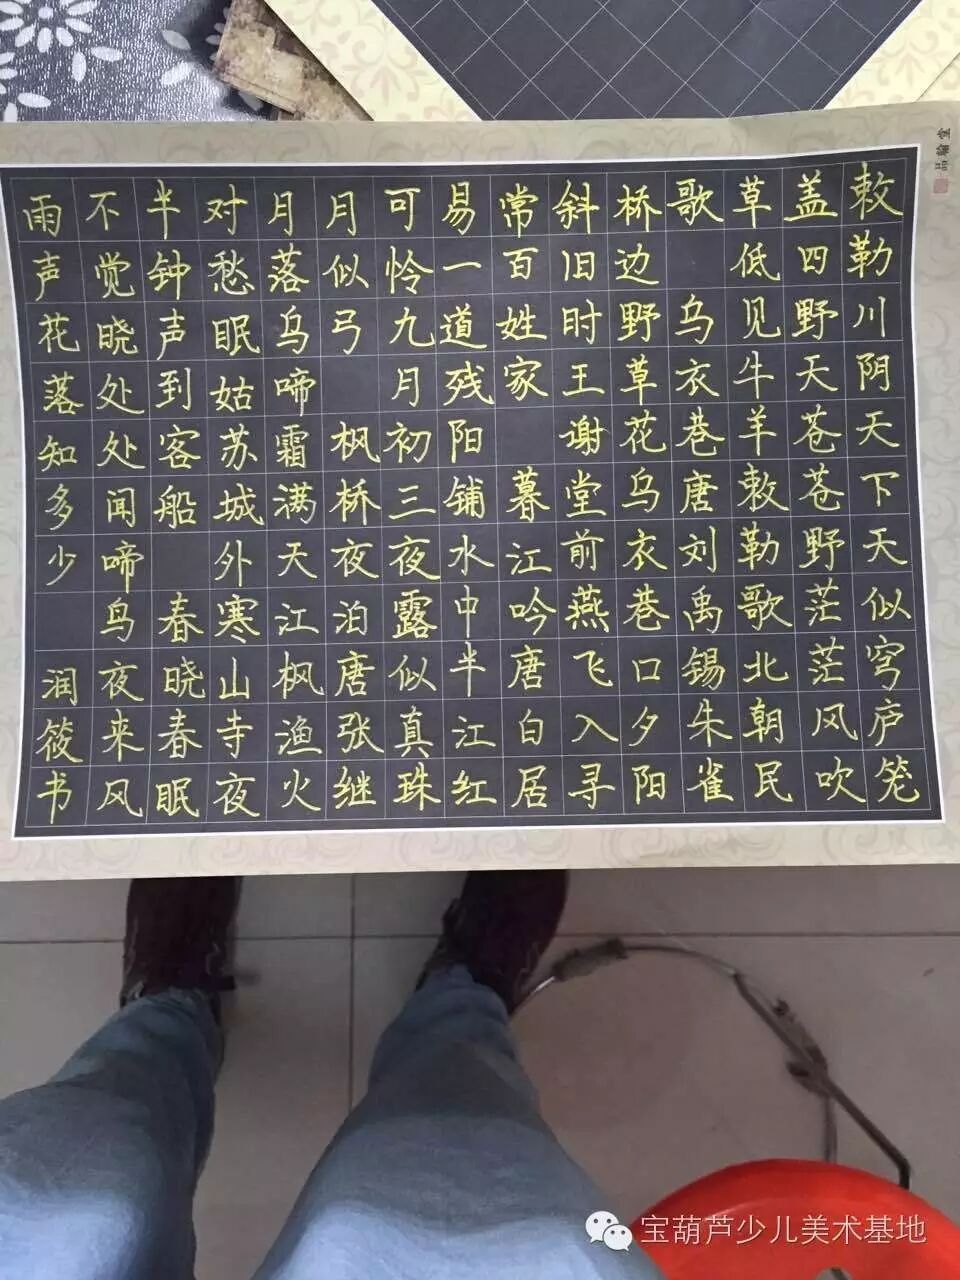 敕勒川阴天下天似穹庐笼
盖四野天苍苍野茫茫风吹
草低见牛羊敕勒歌北朝民
歌 乌衣巷唐刘禹锡朱雀
桥边野草花乌衣巷口夕阳
斜旧时王谢堂前燕飞入寻
常百姓家 暮江吟唐白居
易一道残阳铺水中半江红
可怜九月初三夜露似真珠
月似弓 枫桥夜泊唐张继
月落乌啼霜满天江枫渔火
对愁眠姑苏城外寒山寺夜
半钟声到客船 春晓春眠
不觉晓处处闻啼鸟夜来风
雨声花落知多少 润筱书
品翰堂
宝葫芦少儿美术基地